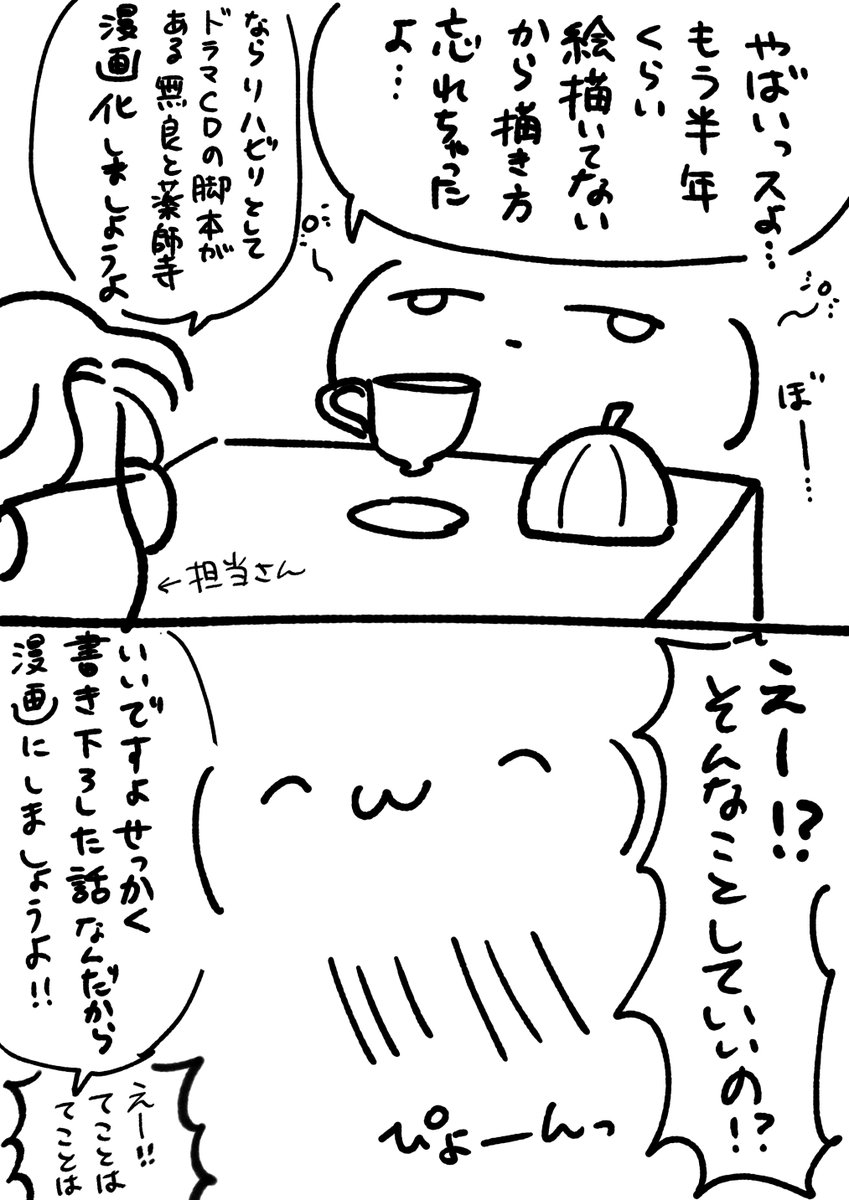 やばいっスよ…
もう半年
くらい
絵描いてない
から描き方
忘れちゃった
よ…
ならリハビリとして
ドラマCDの脚本が
ある無良と薬師寺
漫画化しましょうよ
ぼーー…
←担当さん
えー!?
そんなことしていいの!?
いいですよせっかく
書き下ろした話なんだから
漫画にしましょうよ!!
ぴょーんっ
えー!!
てことは
てことは